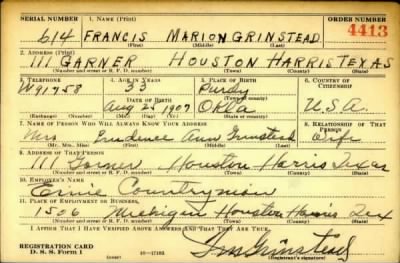 SERIAL NUMBER 1. NAME (Print) ORDER NUMBER
614 FRANCIS MARION GRINSTEAD 4413
(First) (Middle) (Last)
2. ADDRESS (Print)
111 GARNER HOUSTON HARRIS TEXAS
(Number and street or R. F. D. number) (Town) (County) (State)
3. TELEPHONE 4. AGE IN YEARS 5. PLACE OF BIRTH 6. COUNTRY OF CITIZENSHIP
W91758 33 Purdy
DATE OF BIRTH (Town or county)
Aug 25 1907 Okla U.S.A.
(Exchange) (Number) (Mo.) (Day) (Yr.) (State or country)
7. NAME OF PERSON WHO WILL ALWAYS KNOW YOUR ADDRESS 8. RELATIONSHIP OF THAT PERSON
Mrs Prudence Ann Grinstead Wife
(Mr., Mrs., Miss) (First) (Middle) (Last)
9. ADDRESS OF THAT PERSON
111 Garner Houston Harris Texas
(Number and street or R. F. D. number) (Town) (County) (State)
10. EMPLOYER'S NAME
Ernie Countryman
11. PLACE OF EMPLOYMENT OR BUSINESS
1506 Michigan Houston Harris Tex
(Number and street or R. F. D. number) (Town) (County) (State)
I AFFIRM THAT I HAVE VERIFIED ABOVE ANSWERS AND THAT THEY ARE TRUE.
REGISTRATION CARD
D. S. S. Form 1 16—17105 (Registrant's signature)